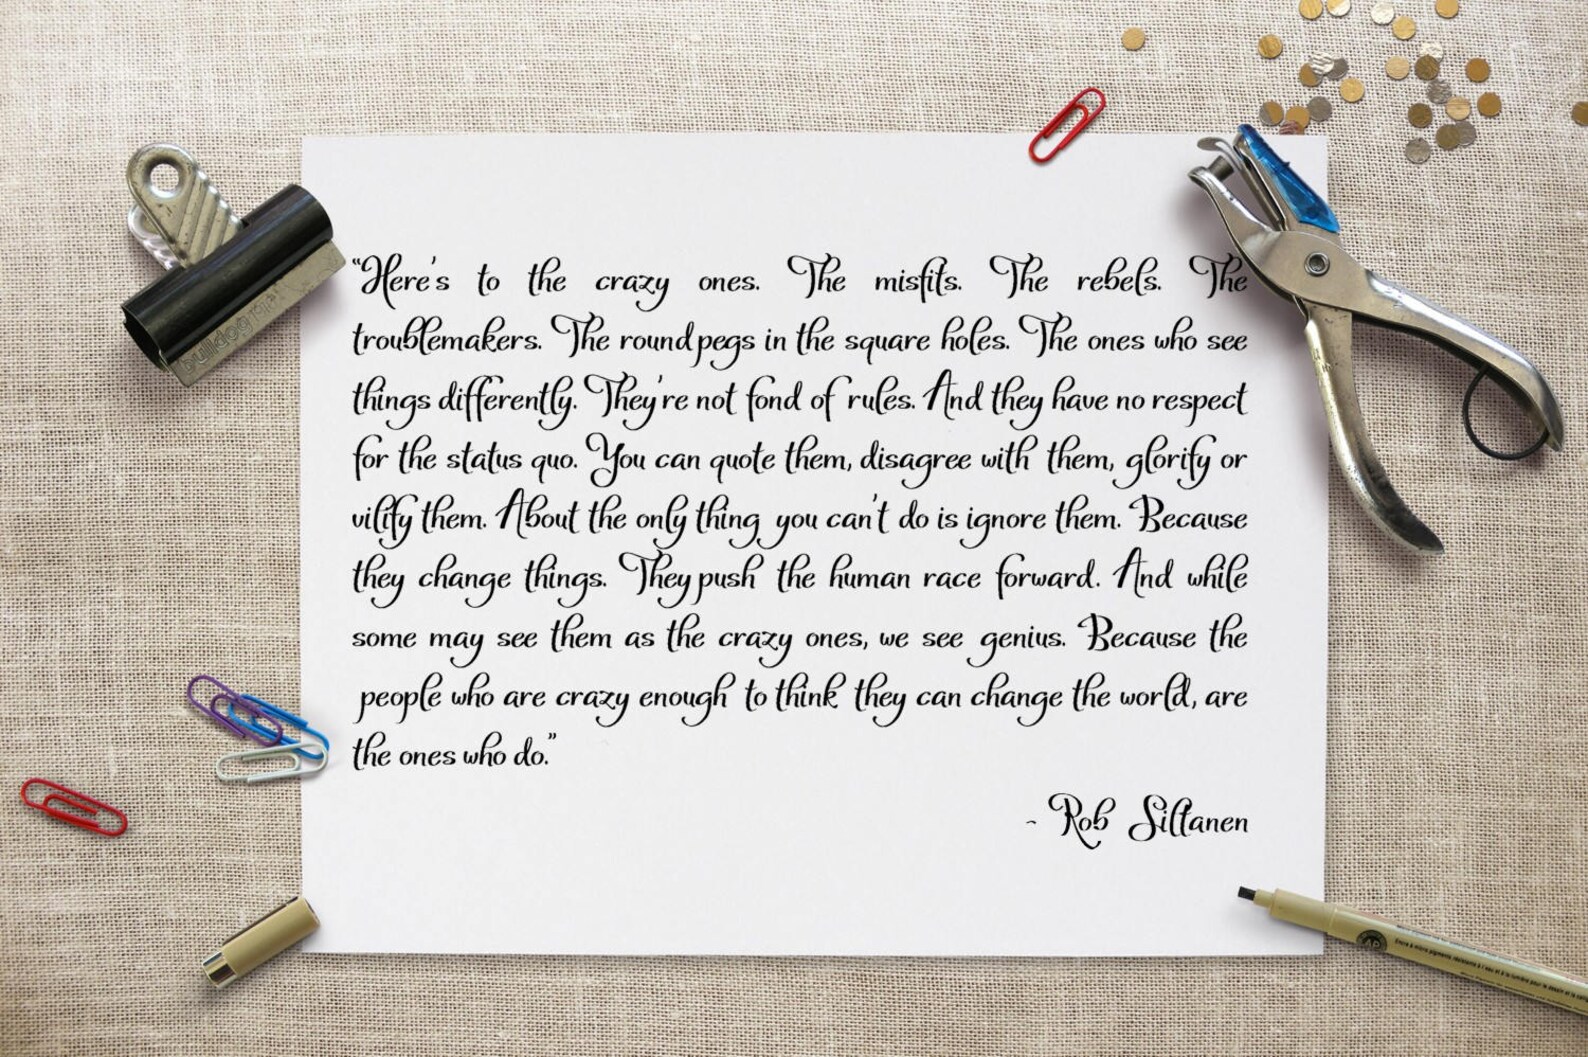 “Here's to the crazy ones. The misfits. The rebels. The
troublemakers. The round pegs in the square holes. The ones who see
things differently. They're not fond of rules. And they have no respect
for the status quo. You can quote them, disagree with them, glorify or
vilify them. About the only thing you can't do is ignore them. Because
they change things. They push the human race forward. And while
some may see them as the crazy ones, we see genius. Because the
people who are crazy enough to think they can change the world, are
the ones who do.”
- Rob Siltanen
bulldog